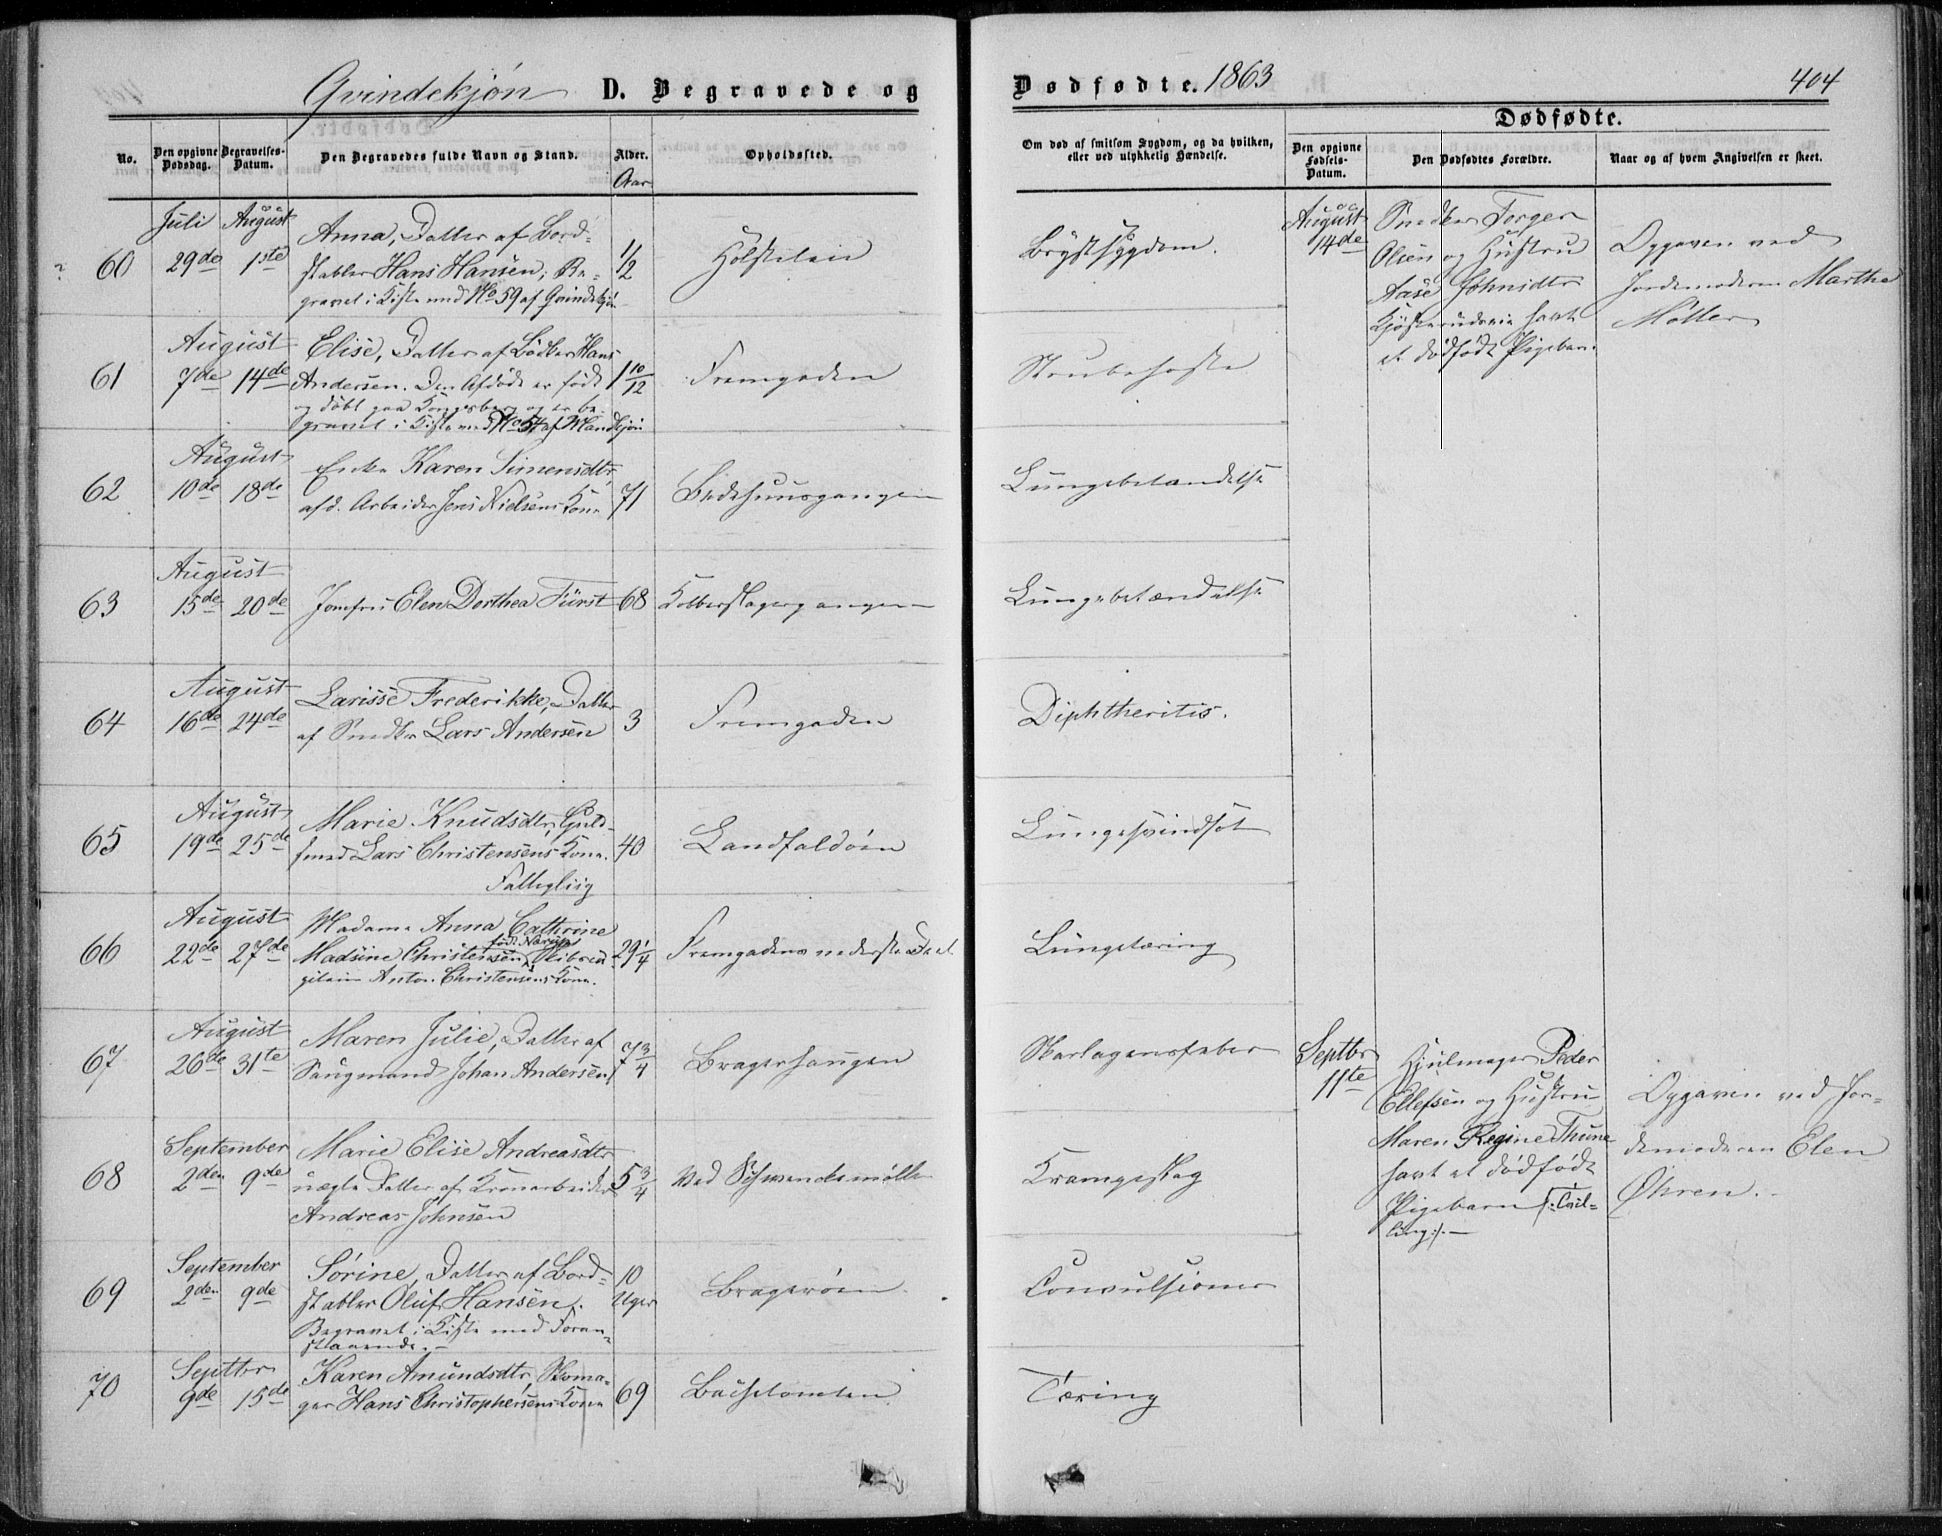 Qvindekjøn D. Begravede og
Dødfødte. 1863
404
No.
Den opgivne Dødsdag.
Begravelses-Datum.
Den Begravedes fulde Navn og Stand.
Alder.
Aar
Opholdssted.
Om død af smitsom Sygdom, og da hvilken,
eller ved ulykkelig Hændelse.
Dødfødte.
Den opgivne Fødsels-Datum.
Den Dødfødtes Forældre.
Naar og af hvem Angivelsen er skeet.
60
Juli August
29de 1ste
Anna, Datter af Bord-
stabler Hans Hansen; Be-
gravet i Kiste med No 59 af Qvindekjøn
1/2
Holstein
Brystsygdom.
August
14de
Snedker Torger
Olsen og Hustru
Aase Johnsdtr
havt
et dødfødt Pigebarn.
Opgaven ved
Jordemoderen Martha
Møller
61
August
7de 14de
Elise, Datter af Bødker Hans
Andersen. Den Afdøde er født
og døbt paa Kongsberg og er be-
gravet i Kiste med No 54 af Mandkjøn
1 10/12
Fremgaden
Strubehoste
62
August
10de 18de
Enke Karen Simensdtr,
afd. Arbeider Jens Nielsens Kone
71
Bedehuusgangen
Lungebetændelse
63
August
15de 20de
Jomfru Elen Dorthea Fürst
68
Kobberslagergangen
Lungebetændelse
64
August
16de 24de
Larisse Frederikke, Datter
af Snedker Lars Andersen
3
Fremgaden
Diphtheritis.
65
August
19de 25de
Marie Knudsdtr, Guld-
smed Lars Christensens Kone.
Fattiglig
40
Landfaldøen
Lungesvindsot
66
August
22de 27de
Madame Anna Cathrine
Madsine Christensen,
født
Anton Christensens Kone.
29 1/4
Fremgadens nederste Deel
Lungetæring
67
August
26de 31te
Maren Julie, Datter af
Saugmand Johan Andersen
7 3/4
Bragerhaugen
Skarlagensfeber
Septbr
11te
Hjulmager Peder
Ellefsen og Hustru
Maren Regine Thune
havt et dødfødt
Pigebarn /: Tvil-
ling :/. —
Opgaven ved Jor-
demoderen Elen
Øhren. -
68
September
2den 9de
Marie Elise Andreasdtr
uægte Datter af Kornarbeider
Andreas Johnsen
5 3/4
ved Schwenckemølle
Krampeslag
69
September
2den 9de
Sørine, Datter af Bord-
stabler Oluf Hansen.
Begravet i Kiste med Foran-
staaende. -
10
Uger
Bragerøen
Convulsioner
70
Septbr
9de 15de
Karen Amundsdtr, Skoma-
ger Hans Christophersens Kone
69
Bachetomten
Tæring